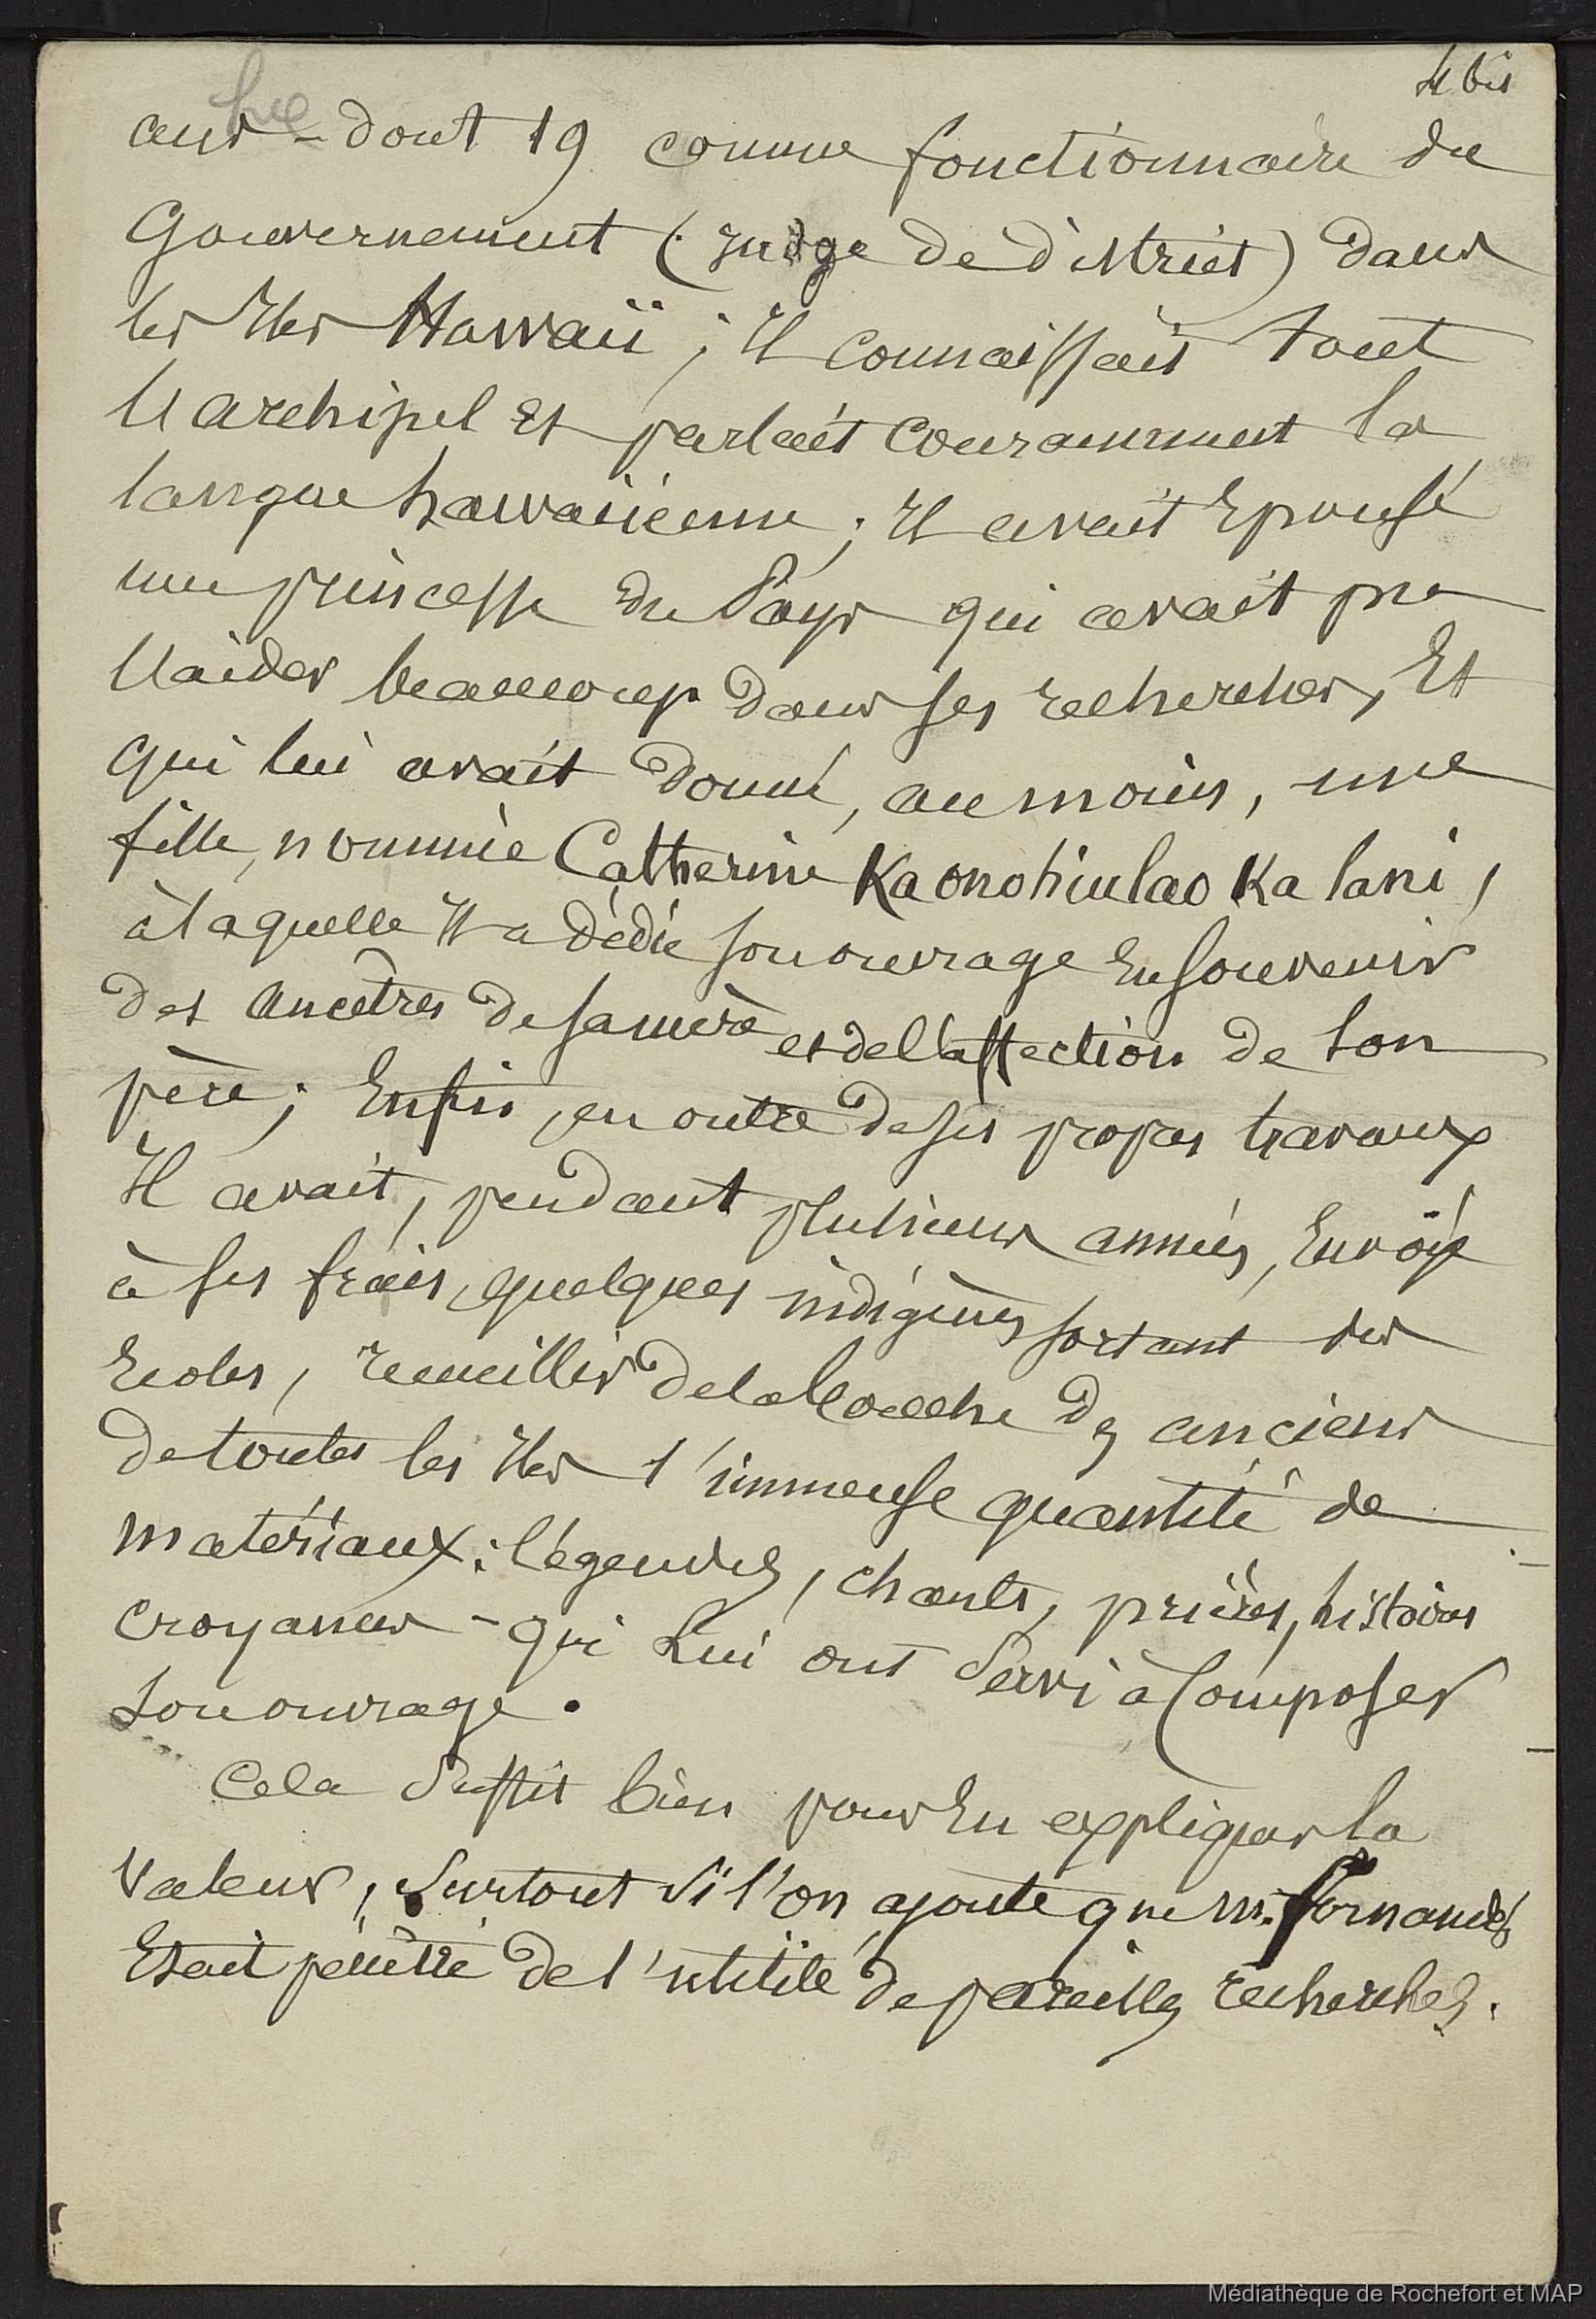 4 bis
ans - dont 19 comme fonctionnaire du
Gouvernement (Judge de district) dans
les Iles Hawaii ; Il connaissait tout
l'archipel Et parlait couramment la
langue hawaiienne ; Il avait Epousé
une princesse du Pays qui avait pu
l'aider beaucoup dans ses recherches, Et
qui lui avait donné, au moins, une
fille, nommée Catherine Kaonohiulao Ka lani,
à laquelle Il a dédié son ouvrage En souvenir
des ancêtres de sa mère et de l'affection de son
père ; Enfin, en outre de ses propres travaux
Il avait, pendant plusieurs années, Envoyé
à ses frais, quelques indigènes sortant des
Ecoles, recueillir de la bouche des anciens
de toutes les Iles l'immense quantité de
matériaux : légendes, chants, prières, histoires
croyances - qui Lui ont Servi à Composer
son ouvrage.
Cela Suffit bien pour En expliquer la
valeur, Surtout Si l'on ajoute que M. Fornander
Etait pénétré de l'utilité de pareilles recherches.
Médiathèque de Rochefort et MAP